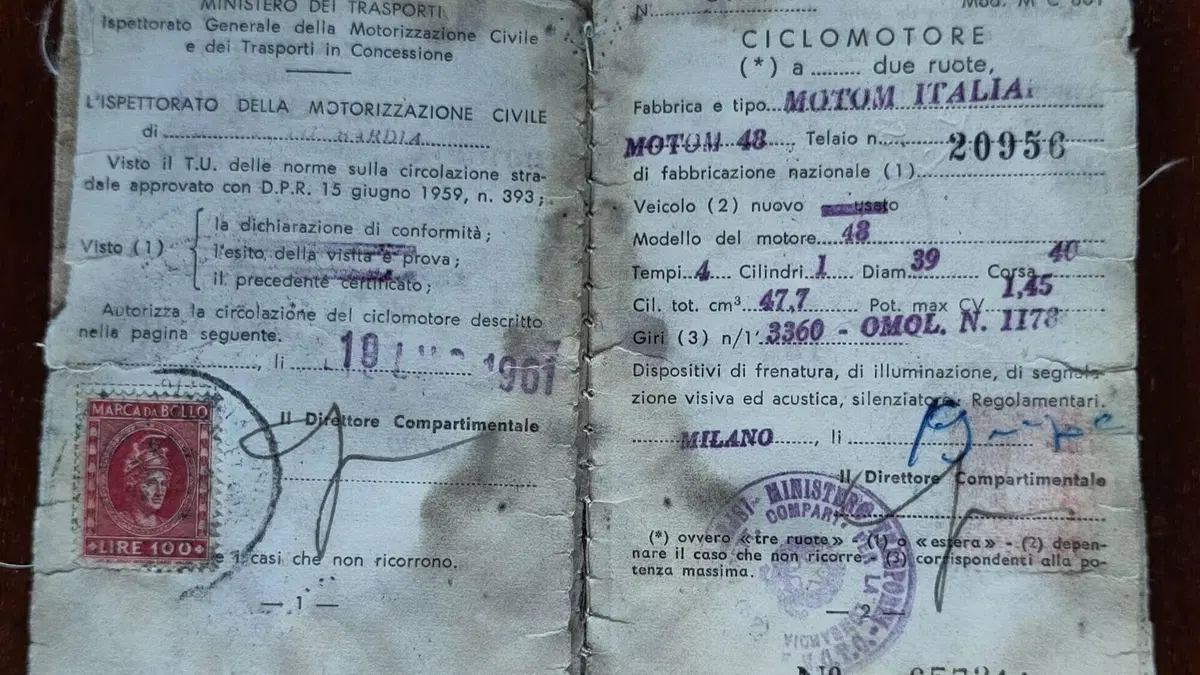 MINISTERO DEI TRASPORTI
Ispettorato Generale della Motorizzazione Civile
e dei Trasporti in Concessione
L'ISPETTORATO DELLA MOTORIZZAZIONE CIVILE
di
Visto il T.U. delle norme sulla circolazione stra-
dale approvato con D.P.R. 15 giugno 1959, n. 393;
Visto (1)
la dichiarazione di conformità;
l'esito della visita e prova;
il precedente certificato;
Autorizza la circolazione del ciclomotore descritto
nella pagina seguente.
, li 19 1961
Il Direttore Compartimentale
MARCA DA BOLLO
LIRE 100
i casi che non ricorrono.
— 1 —
N.
CICLOMOTORE
(*) a ......... due ruote,
Fabbrica e tipo... MOTOM ITALIA
MOTOM 48 Telaio n. 20956
di fabbricazione nazionale (1)
Veicolo (2) nuovo usato
Modello del motore 48
Tempi 4 Cilindri 1 Diam. 39 Corsa 40
Cil. tot. cm³ 47,7 Pot. max CV 1,45
Giri (3) n/1' 3360 - OMOL. N. 1178
Dispositivi di frenatura, di illuminazione, di segnala-
zione visiva ed acustica, silenziatore: Regolamentari.
MILANO, li
Il Direttore Compartimentale
(*) ovvero «tre ruote» - (1) o «estera» - (2) depen-
nare il caso che non ricorre - (3) corrispondenti alla po-
tenza massima.
— 2 —
MINISTERO
COMPART.
PER LA LOMBARDIA
No